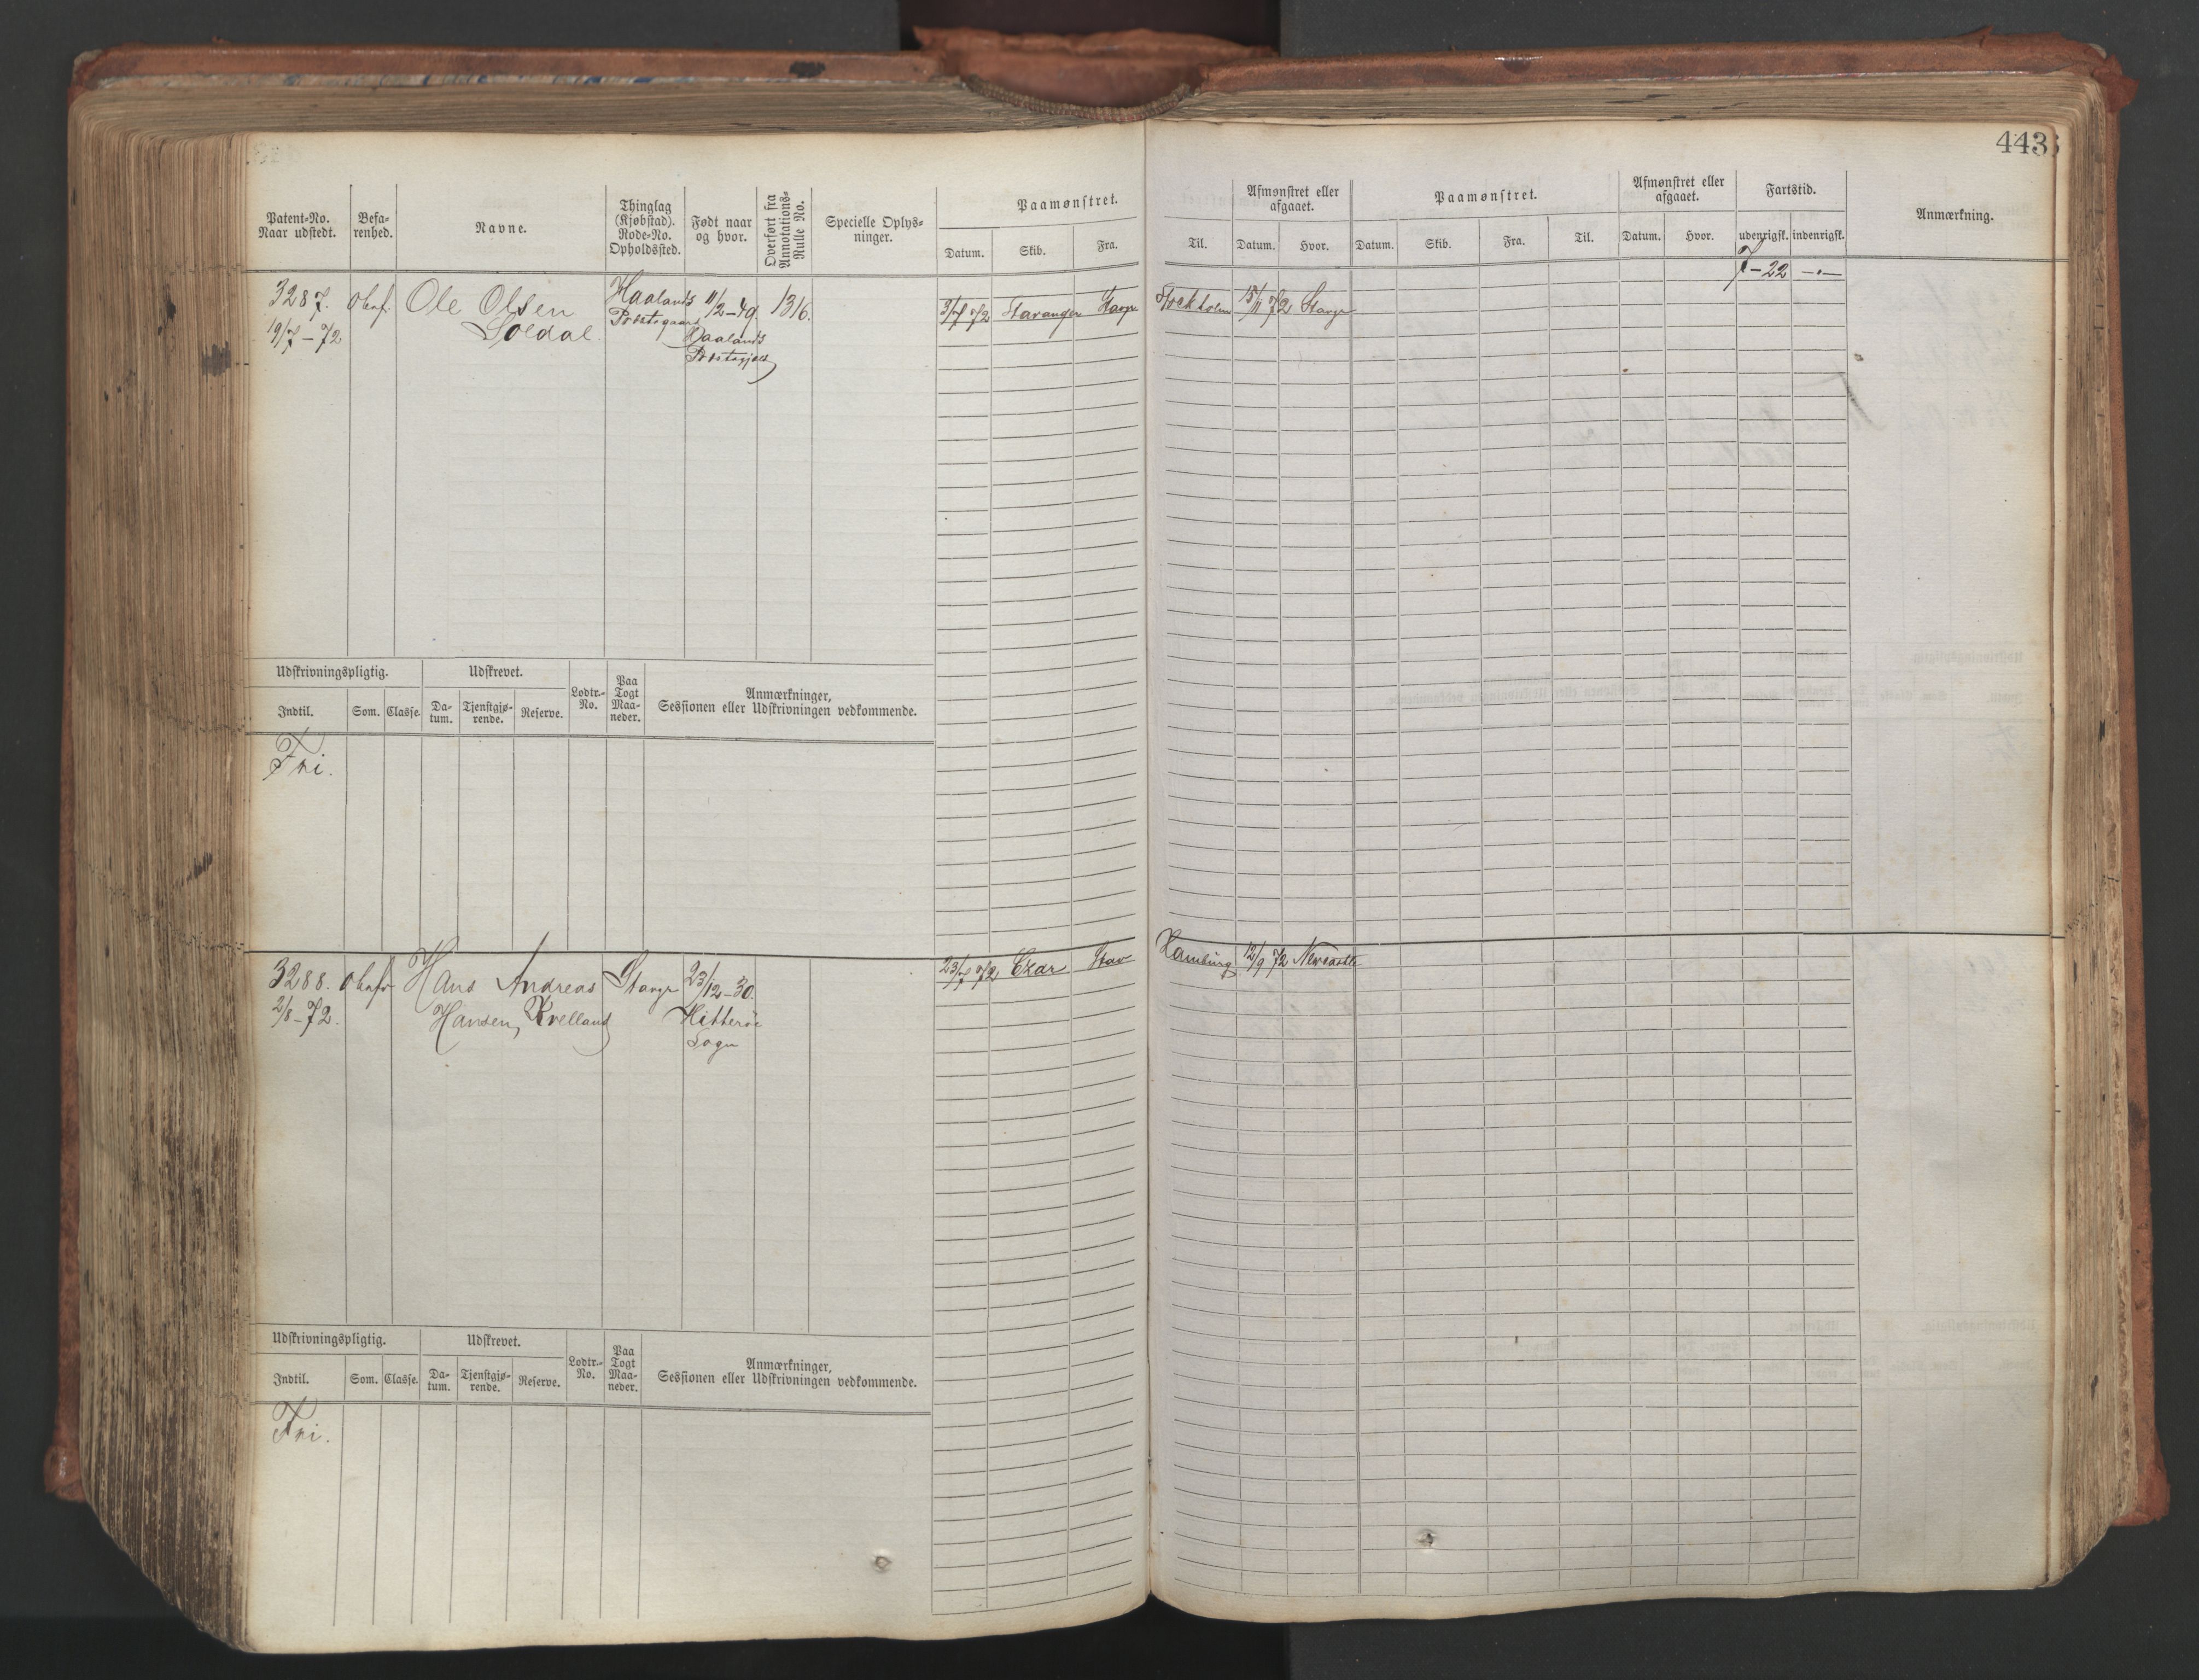 443
Patent-No. Naar udstedt.
Befa-renhed.
Navne.
Thinglag (Kjøbstad). Rode-No. Opholdssted.
Født naar og hvor.
Overført fra Annotations-Rulle No.
Specielle Oplys-ninger.
Paamønstret.
Datum. Skib. Fra. Til.
Afmønstret eller afgaaet.
Datum. Hvor.
Paamønstret.
Datum. Skib. Fra. Til.
Afmønstret eller afgaaet.
Datum. Hvor.
Fartstid.
udenrigsk. indenrigsk.
Anmærkning.
7-22
3287. Ole Olsen Haalands 11/2-49. 1316. Stavanger Stavgr Stockholm 15/11 72 Stavgr
19/7-72 Soldal Præstegaard Haalands
Præstegjeld
Udskrivningspligtig. Udskrevet. Lodtr.-No. Paa Togt Maa-neder. Anmærkninger, Sessionen eller Udskrivningen vedkommende.
Indtil. Som. Classe. Da-tum. Tjenstgjø-rende. Reserve.
Fri.
3288. Hans Andreas Stavgr 23/12-30. 23/7 72 Czar Stav Hamburg 12/9 72 Newcastle
2/8-72. Hansen, Kvelland Hitterøe
Sogn
Udskrivningspligtig. Udskrevet. Lodtr.-No. Paa Togt Maa-neder. Anmærkninger, Sessionen eller Udskrivningen vedkommende.
Indtil. Som. Classe. Da-tum. Tjenstgjø-rende. Reserve.
Fri.